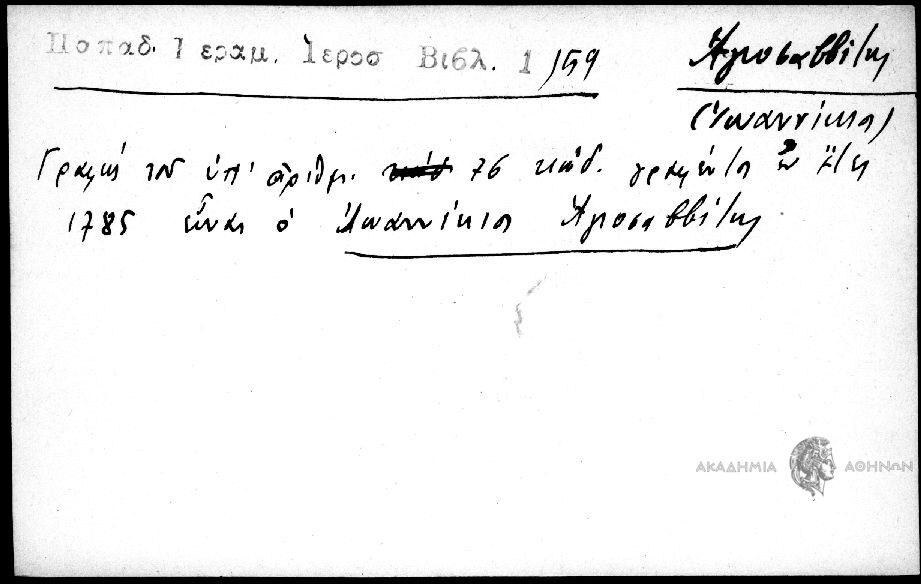 Παπαδ. Ἱεραμ. Ἱεροσ Βιβλ. 1 /159
Ἁγιοσαββίτης
(Ἰωαννίκιος)
Γραφεύς τοῦ ὑπ' ἀριθμ. 76 κώδ. γραφέντος ἐν ἔτει
1785 εἶναι ὁ Ἰωαννίκιος Ἁγιοσαββίτης
ΑΚΑΔΗΜΙΑ ΑΘΗΝΩΝ